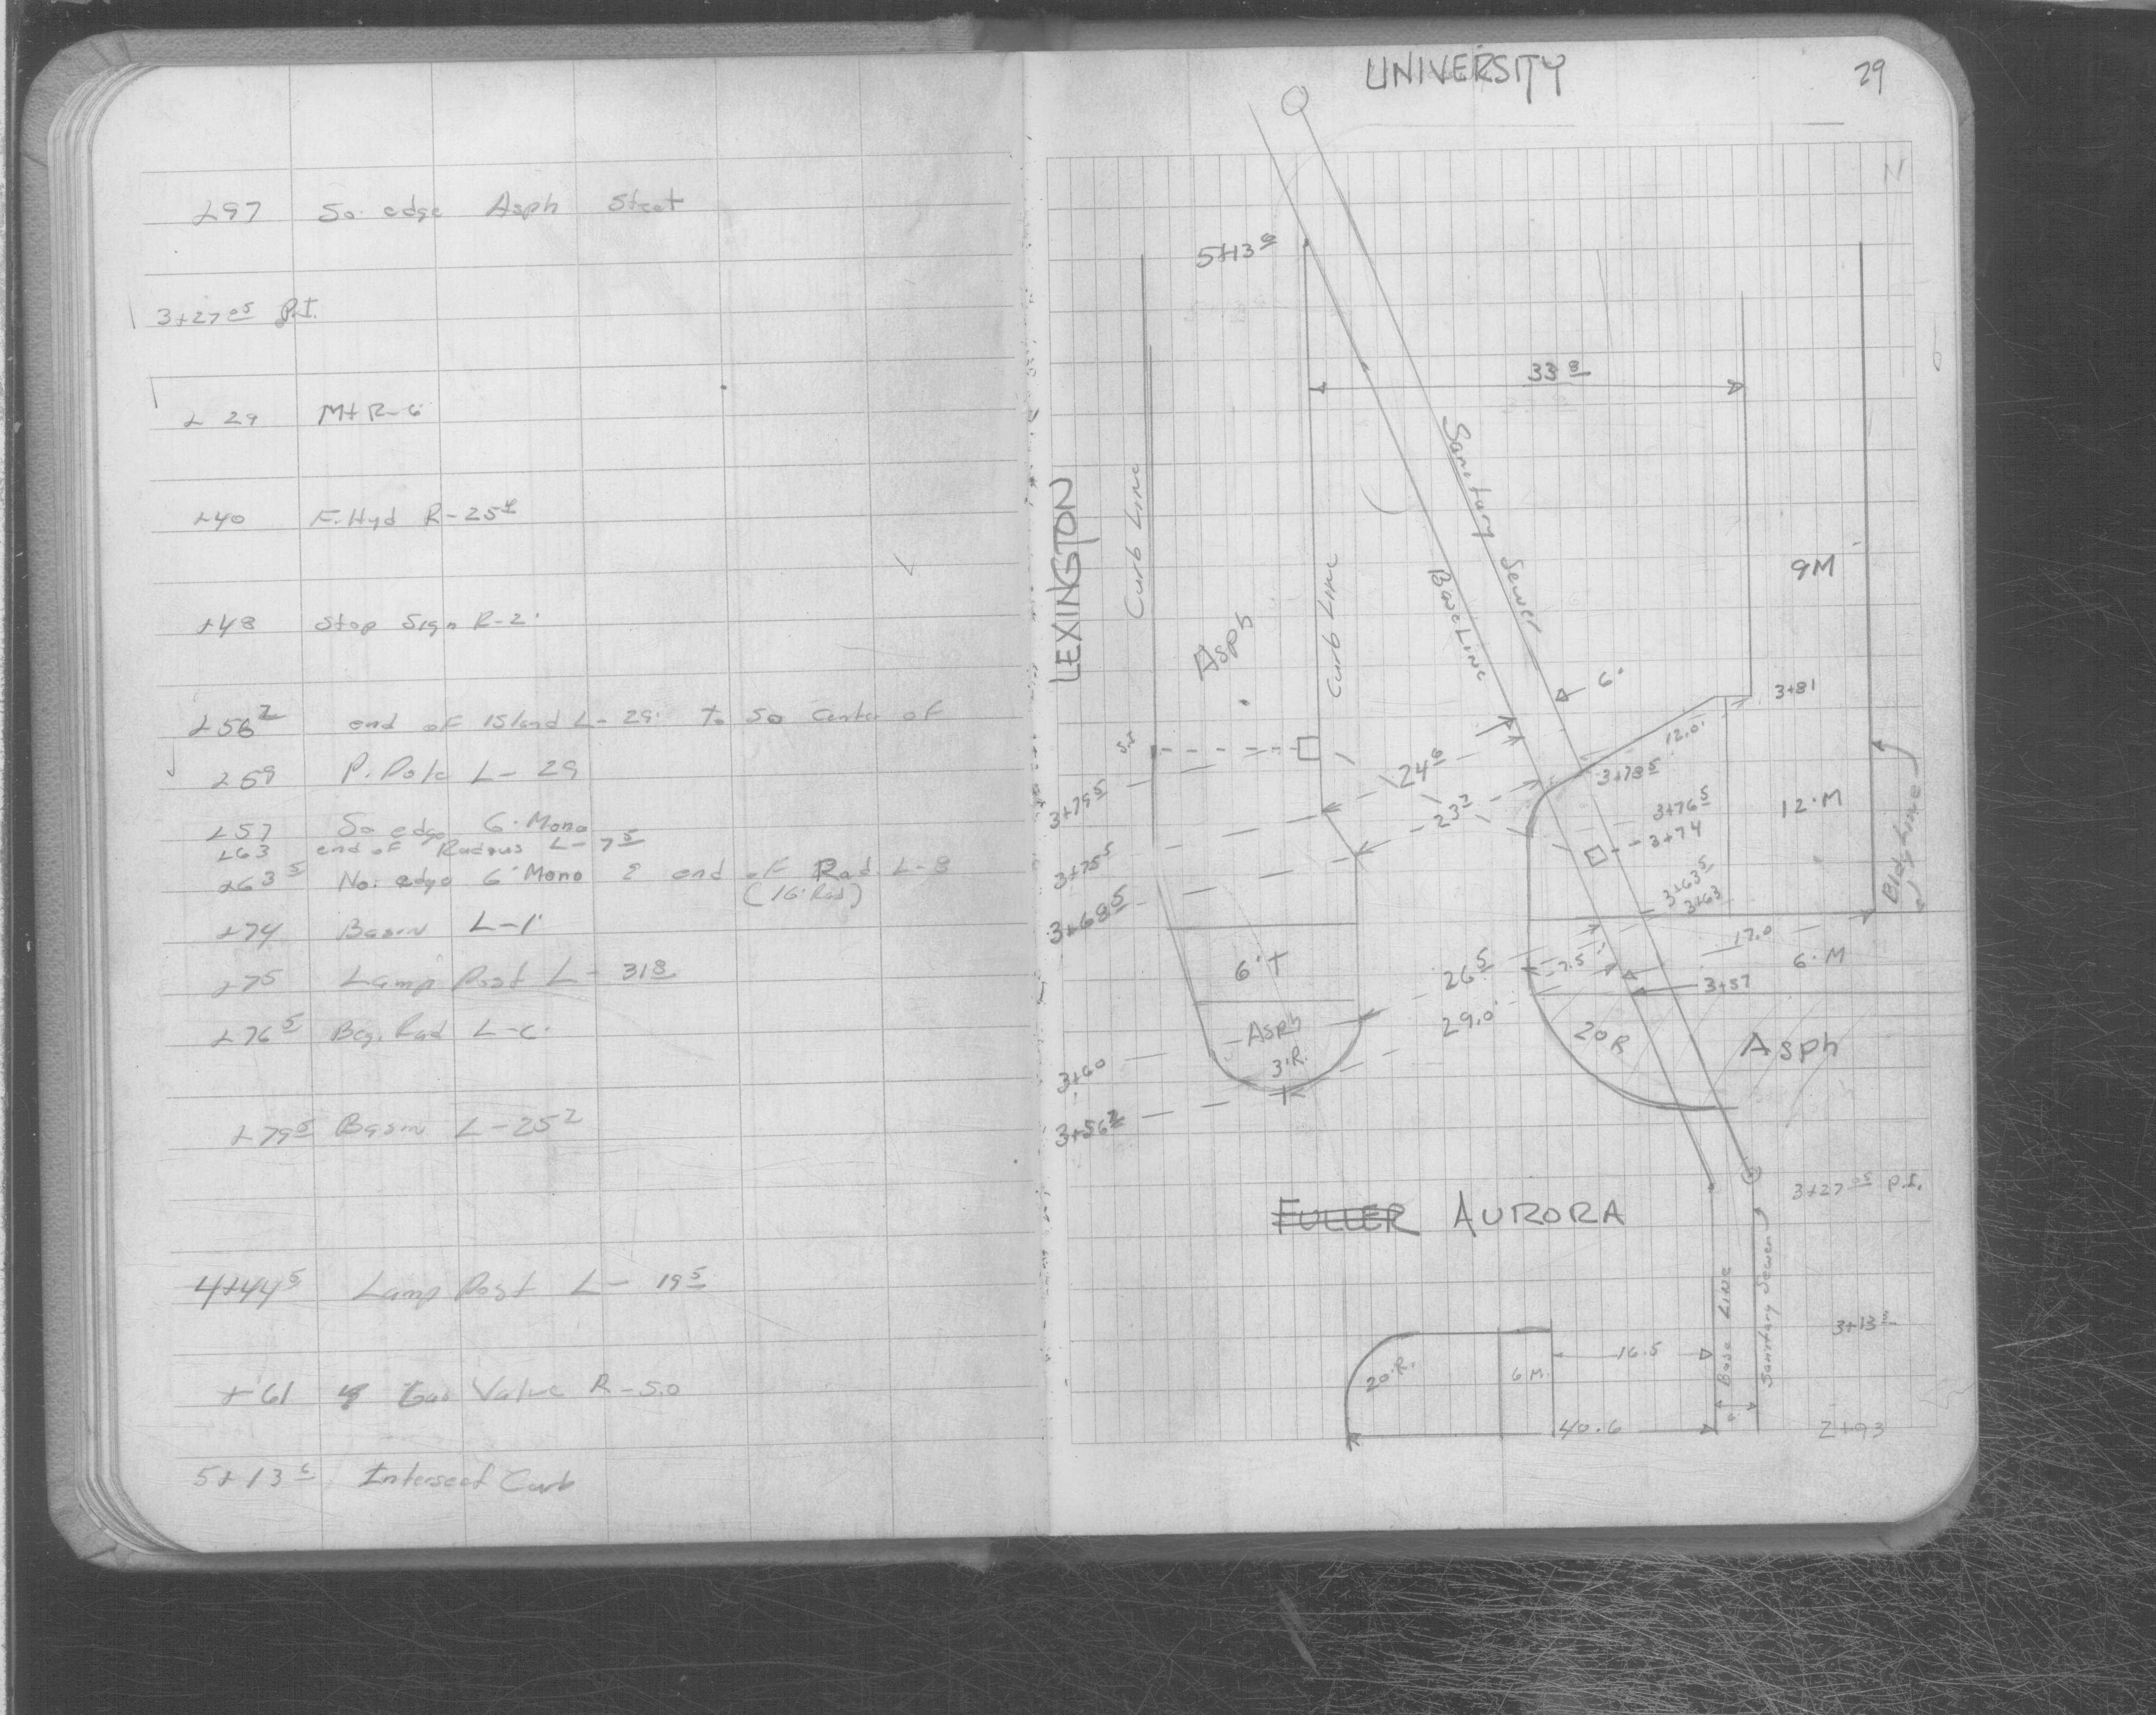 +97 So. edge Asph Street
3+27 05 P.I.
+29 MH R-6
+40 F. Hyd R-25 4
+48 Stop Sign R-2'
+56 2 end of Island L-29' to So center of
+59 P. Pole L-29
+57 So edge 6' Mono
+63 end of Radius L-7 5
+63 5 No. edge 6' Mono & end of Rad L-8
(16' Rad)
+74 Basin L-1'
+75 Lamp Post L-31 8
+76 5 Beg. Rad L-6'
+79 5 Basin L-25 2
4+44 5 Lamp Post L-19 5
+61 Gas Valve R-5.0
5+13 6 Intersect Curb
UNIVERSITY
29
N
5+13 6
33 8
LEXINGTON
Curb Line
Asph
Curb Line
Base Line
Sanitary Sewer
9M
6'
3+81
12.0'
24 6
3+78 5
3+79 5
23 7
3+76 5
12' M
3+74
Bldg Line
3+75 5
3+63 5
3+63
3+68 5
17.0
6' T
26 5
7.5'
6' M
3+57
Asph
29.0'
20 R
Asph
3' R.
3+60
3+56 2
3+27 05 P.I.
FULLER AURORA
Base Line
Sanitary Sewer
3+13 5
20' R.
6 M
16.5
40.6
2+93